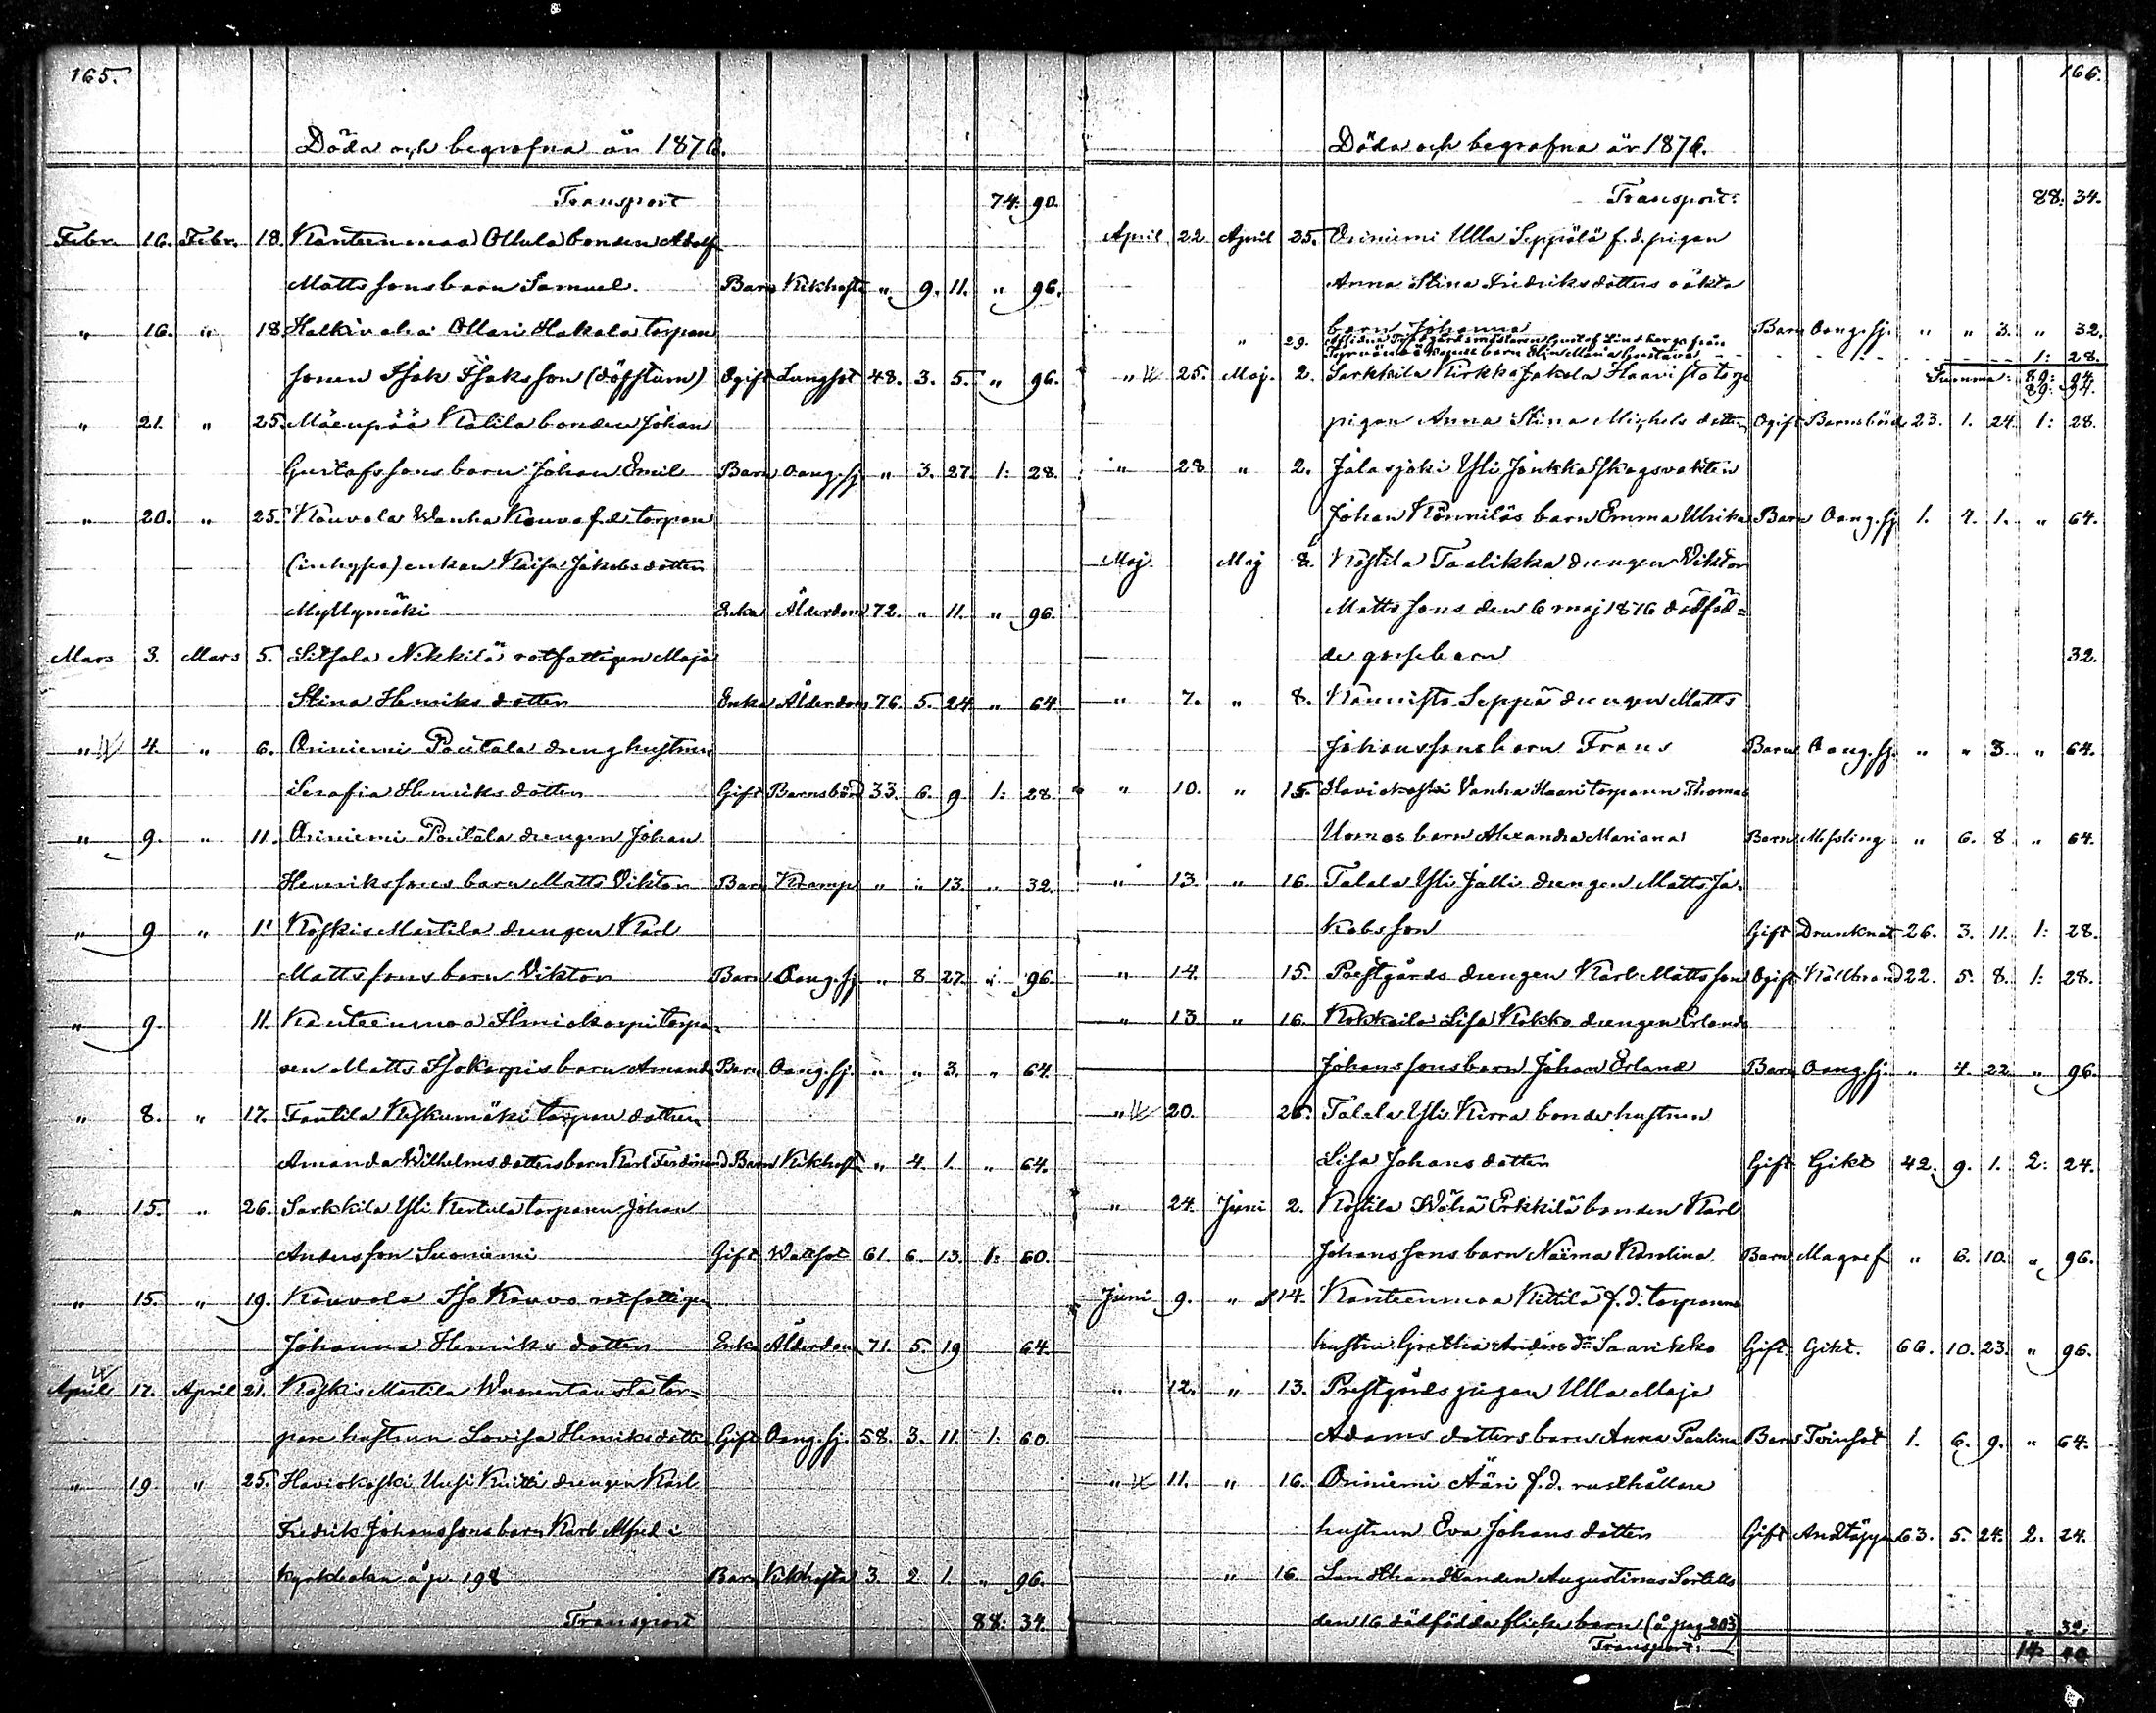 165.
Döda och begrafna år 1876.
Transport 74: 90.
Febr. 16. Febr. 18. Kanteenmaa Ollula bonden Adolf
Mattssons barn Samuel. Barn Kikhosta " 9. 11. " 96.
" 16. " 18. Halkivaha Ollari Hakala torpare
sonen Isak Isaksson (döfstum) Ogift Lungsot 48. 3. 5. " 96.
" 21. " 25. Mäenpää Katila bonden Johan
Gustafssons barn Johan Emil Barn Oang. sj. " 3. 27. 1: 28.
" 20. " 25. Kouvola Wanha Kouvo f.d. torpare
(inhyses) enkan Kaisa Jakobsdotter
Myllymäki Enka Ålderdom 72. " 11. " 96.
Mars 3. Mars 5. Liitsola Nikkilä rotfattigen Maja
Stina Henriksdotter Enka Ålderdom 76. 5. 24. " 64.
" 4. " 6. Oriniemi Poutala dreng hustrun
Serafia Henriksdotter Gift Barnsbörd 33. 6. 9. 1: 28.
" 9. " 11. Oriniemi Poutala drengen Johan
Henrikssons barn Matts Viktor Barn Kramp " " 13. " 32.
" 9 " 11 Koskis Martila drengen Karl
Mattssons barn Viktor Barn Oang. sj. " 8 27. " 96.
" 9. 11. Kanteenmaa torpa-
ren Matts Isokorpis barn Amanda Barn Oang. sj. " " 3. " 64.
" 8. " 17. Tantila Keskumäki torpare dottern
Amanda Wilhelmsdotters barn Karl Ferdinand Barn Kikhosta " 4. 1. " 64.
" 15. " 26. Sarkkila Yli Kertula torparen Johan
Andersson Suoniemi Gift Wattsot 61. 6. 13. 1: 60.
" 15. " 19. Kouvola Iso Kouvo rotfattigen
Johanna Henriksdotter Enka Ålderdom 71. 5. 19 64.
April 17. April 21. Koskis Martila Wuorentausta tor=
pare hustrun Lovisa Henriksdotter Gift Oang. sj. 58. 3. 11. 1: 60.
" 19. " 25. Haviokoski Uusi Knitti drengen Karl
Fredrik Johanssons barn Karl Alfred i
kyrkboken å p. 198 Barn Kikhosta 3. 2 1. " 96.
Transport 88: 34.
166.
Döda och begrafna år 1876.
Transport: 88: 34.
April 22 April 25. Oriniemi Ulla Seppälä f.d. pigan
Anna Stina Fredriksdotters oäkta
barn Johanna Barn Oang. sj. " " 3. " 32.
" 29. Gustaf Lindbergs från
barn Elin Maria Gustava 1: 28.
Summa: 89: 94.
89: 94.
" 25. Maj. 2. Sarkkila Kirkka Jakola Haavisto torp
pigan Anna Stina Michelsdotter Ogift Barnsbörd 23. 1. 24. 1: 28.
" 28 " 2. Jalasjoki Yli Jonkka Skogsvakten
Johan Könniläs barn Emma Ulrika Barn Oang. sj. 1. 7. 1. " 64.
Maj. Maj 8. Kostila Taalikka drengen Viktor
Mattssons den 6 maj 1876 dödföd=
de gossebarn 32.
" 7. " 8. Kannisto Seppä drengen Matts
Johanssons barn Frans Barn Oang. sj. " " 3. " 64.
" 10. " 15. Haviokoski Vanha Haari torparen Thomas
Uomas barn Alexandra Mariana Barn Messling " 6. 8 " 64.
" 13. " 16. Talala Yli Jalli drengen Matts Ja-
kobsson Gift Drunknat 26. 3. 11. 1: 28.
" 14. 15. Prestgårds drengen Karl Mattsson Ogift Kallbrand 22. 5. 8. 1: 28.
" 13. " 16. Kokkoila Lisa Kokko drengen Erland
Johanssons barn Johan Erland Barn Oang. sj. " 4. 22 " 96.
" 20. 26. Talala Yli Kirra bonde hustrun
Lisa Johansdotter Gift Gikt 42. 9. 1. 2: 24.
" 24. Juni 2. Kostila Wähä Erkkilä bonden Karl
Johanssons barn Naima Karolina Barn Magref " 6. 10. " 96.
Juni 9. " 14. Kanteenmaa Kittilä f.d. torparens
hustru Gretha Anders dr Saarikko Gift Gikt. 66. 10. 23. " 96.
" 12. " 13. Prestgårds pigan Ulla Maja
Adamsdotters barn Anna Paulina Barn Tvinsot 1. 6. 9. " 64.
" 11. " 16. Oriniemi Ääri f.d. rusthållare
hustrun Eva Johansdotter Gift Andtäppa 63. 5. 24. 2. 24.
" 16. Landthandlanden Augustinus
den 16 dödfödda flicke barn (å pag 303) " 32.
Transport: 14